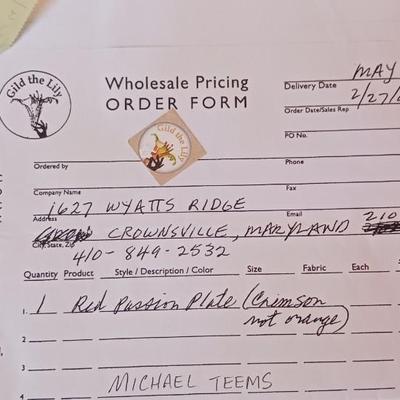 Gild the Lily
Wholesale Pricing
ORDER FORM
Gild the Lily
Delivery Date MAY
Order Date/Sales Rep 2/27/
PO No.
Ordered by
Phone
Company Name
Fax
1627 WYATTS RIDGE
Address
Email
CROWNSVILLE, MARYLAND 210
City, State, Zip
410-849-2532
Quantity Product Style / Description / Color Size Fabric Each
1. 1 Red Passion Plate (Crimson
not orange)
2.
3.
MICHAEL TEEMS
4